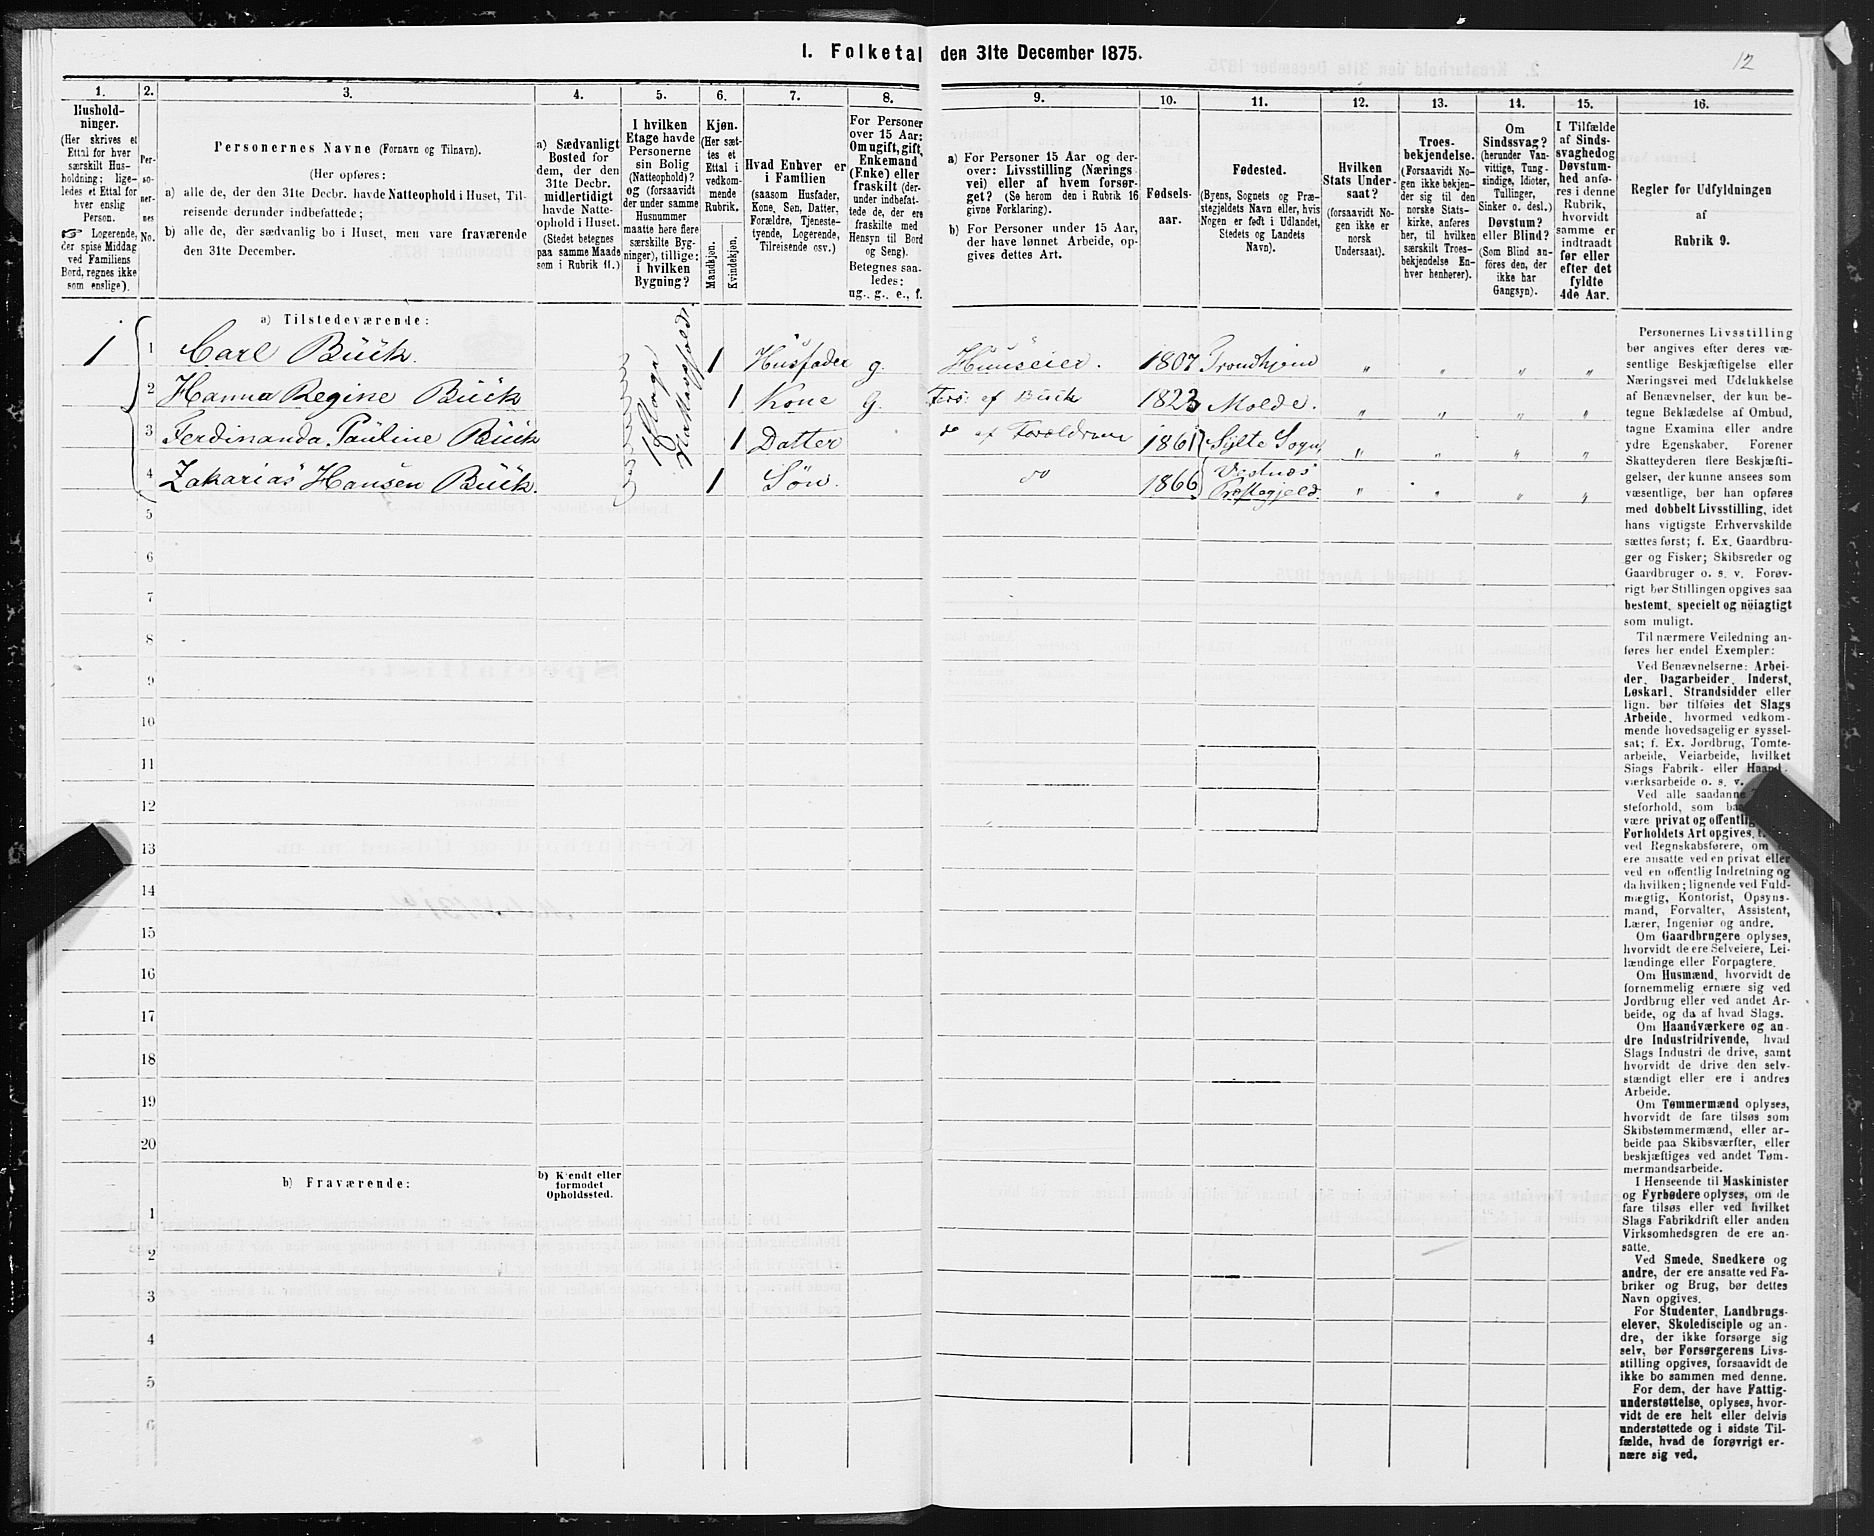 I. Folketal den 31te December 1875.
12
1.
Hushold-
ninger.
(Her skrives et
Ettal for hver
særskilt Hus-
holdning; lige-
ledes et Ettal for
hver enslig
Person.
☞ Logerende,
der spise Middag
ved Familiens
Bord, regnes ikke
som enslige).
2.
Per-
so-
ner-
nes
No.
3.
Personernes Navne (Fornavn og Tilnavn).
(Her opføres:
a) alle de, der den 31te Decbr. havde Natteophold i Huset, Til-
reisende derunder indbefattede;
b) alle de, der sædvanlig bo i Huset, men vare fraværende
den 31te December.
4.
a) Sædvanligt
Bosted for
dem, der den
31te Decbr.
midlertidigt
havde Natte-
ophold i Huset.
(Stedet betegnes
paa samme Maade
som i Rubrik 11.)
5.
I hvilken
Etage havde
Personerne
sin Bolig
(Natteophold)?
og (forsaavidt
der under samme
Husnummer
maatte høre flere
særskilte Byg-
ninger), tillige:
i hvilken
Bygning?
6.
Kjøn.
(Her sæt-
tes et
Ettal i
vedkom-
mende
Rubrik.
Mandkjøn.
Kvindekjøn.
7.
Hvad Enhver er
i Familien
(saasom Husfader,
Kone, Søn, Datter,
Forældre, Tjeneste-
tyende, Logerende,
Tilreisende osv.)
8.
For Personer
over 15 Aar:
Om ugift, gift,
Enkemand
(Enke) eller
fraskilt (der-
under indbefat-
tede de, der ere
fraskilte med
Hensyn til Bord
og Seng).
Betegnes saa-
ledes:
ug., g., e., f.
9.
a) For Personer 15 Aar og der-
over: Livsstilling (Nærings
vei) eller af hvem forsør-
get? (Se herom den i Rubrik 16
givne Forklaring).
b) For Personer under 15 Aar,
der have lønnet Arbeide, op-
gives dettes Art.
10.
Fødsels-
aar.
11.
Fødested.
(Byens, Sognets og Præ-
stegjeldets Navn eller, hvis
Nogen er født i Udlandet,
Stedets og Landets
Navn).
12.
Hvilken
Stats Under-
saat?
(forsaavidt No-
gen ikke er
norsk
Undersaat).
13.
Troes-
bekjendelse.
(Forsaavidt No-
gen ikke bekjen-
der sig til den
norske Stats-
kirke, anføres
her, til hvilken
særskilt Troes-
bekjendelse En-
hver henhører).
14.
Om
Sindssvag?
(herunder Van-
vittige, Tung-
sindige, Idioter,
Tullinger,
Sinker o. desl.)
Døvstum?
eller Blind?
(Som Blind an-
føres den, der
ikke har
Gangsyn).
15.
I Tilfælde
af Sinds-
svaghed og
Døvstum-
hed anfø-
res i denne
Rubrik,
hvorvidt
samme er
indtraadt
før eller
efter det
fyldte
4de Aar.
16.
Regler for Udfyldningen
af
Rubrik 9.
a) Tilstedeværende:
1 1 Carl Bück. 1 Husfader g. Huuseier. 1807 Trondhjem " " " "
2 Hanna Regine Bück 1 Kone G. Fors: af Bück 1823 Molde. " " " "
3 Ferdinanda Pauline Bück 1 Datter do af Forældrene 1861 Sylte Sogn, " " " "
4 Zakarias Hansen Bück. 1 Søn. do 1866 Præstegjeld. " " " "
5
6
7
8
9
10
11
12
13
14
15
16
17
18
19
20
b) Fraværende:
b) Kjendt eller
formodet
Opholdssted.
1
2
3
4
5
6
Personernes Livsstilling
bør angives efter deres væ-
sentlige Beskjæftigelse eller
Næringsvei med Udelukkelse
af Benævnelser, der kun be-
tegne Beklædelse af Ombud,
tagne Examina eller andre
ydre Egenskaber. Forener
Skatteyderen flere Beskjæfti-
gelser, der kunne ansees som
væsentlige, bør han opføres
med dobbelt Livsstilling, idet
hans vigtigste Erhvervskilde
sættes først; f. Ex. Gaardbru-
ger og Fisker; Skibsreder og
Gaardbruger o. s. v. Forøv-
rigt bør Stillingen opgives saa
bestemt, specielt og nøiagtigt
som muligt.
Til nærmere Veiledning an-
føres her endel Exempler:
Ved Benævnelserne: Arbei-
der, Dagarbeider, Inderst,
Løskarl, Strandsidder eller
lign. bør tilføies det Slags
Arbeide, hvormed vedkom-
mende hovedsagelig er syssel-
sat; f. Ex. Jordbrug, Tomte-
arbeide, Veiarbeide, hvilket
Slags Fabrik- eller Haand-
værksarbeide o. s. v.
Ved alle saadanne
steforhold, som
være privat og offentlig
Forholdets Art opgives,
ved Regnskabsførere, om
ere ansatte ved en privat eller
ved en offentlig Indretning og
da hvilken; lignende ved Fuld-
mægtig, Kontorist, Opsyns-
mand, Forvalter, Assistent,
Lærer, Ingeniør og andre.
Om Gaardbrugere oplyses,
hvorvidt de ere Selveiere, Lei-
lændinge eller Forpagtere.
Om Husmænd, hvorvidt de
fornemmelig ernære sig ved
Jordbrug eller ved andet Ar-
beide, og da af hvad Slags.
Om Haandværkere og an-
dre Industridrivende, hvad
Slags Industri de drive, samt
hvorvidt de drive den selv-
stændigt eller ere i andres
Arbeide.
Om Tømmermænd oplyses,
hvorvidt de fare tilsøs som
Skibstømmermænd, eller ar-
beide paa Skibsværfter, eller
beskjæftiges ved andet Tøm-
mermandsarbeide.
I Henseende til Maskinister
og Fyrbødere oplyses, om de
fare tilsøs eller ved hvilket
Slags Fabrikdrift eller anden
Virksomhedsgren de ere an-
satte.
Ved Smede, Snedkere og
andre, der ere ansatte ved Fa-
briker og Brug, bør dettes
Navn opgives.
For Studenter, Landbrugs-
elever, Skoledisciple og an-
dre, der ikke forsørge sig
selv, bør Forsørgerens Livs-
stilling opgives, forsaavidt de
ikke bo sammen med denne.
For dem, der have Fattig-
understøttelse, oplyses, hvor-
vidt de ere helt eller delvis
understøttede og i sidste Til-
fælde, hvad de forøvrigt er-
nære sig ved.